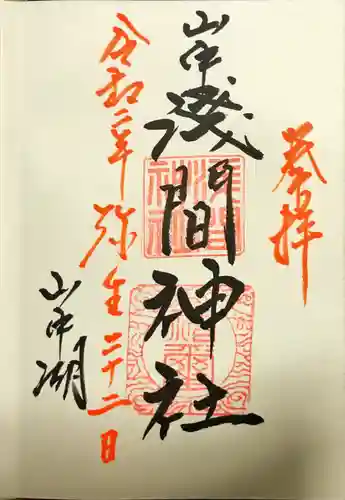 奉拝
山中浅間神社
浅間神社
令和二年弥生二十二日
山中湖